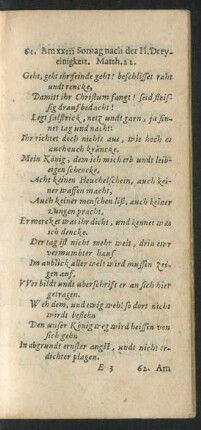 61. Am xxiii Sontag nach der H. Drey-
einigkeit. Matth. 22.
Geht, geht ihr feinde geht! beschlisset raht
undt rencke,
Damitt ihr Christum fangt! seid fleis-
sig drauf bedacht!
Legt fallstrick, netz undt garn, ja sin-
net tag und nacht:
Ihr richtet doch nichts aus, wie hoch es
auch euch kräncke.
Mein König, dem ich mich erb undt leib-
eigen schencke,
Acht keinen Heuchelschein, auch kei-
ner waffen macht,
Auch keiner menschen list, auch keiner
zungen pracht.
Er mercket was ihr dicht, und kennet was
ich dencke.
Der tag ist nicht mehr weit, drin ewr
vermumbter hauf
Im anblick aller welt wird mussen zei-
gen auf,
Wes bildt undt uberschrift er an sich hier
getragen.
Weh dem, und ewig weh! so dort nicht
wirdt bestehn
Den unser König weg wird heissen von
sich gehn
In abgrundt ernster angst, undt nicht er-
dichter plagen.
E 3 62. Am